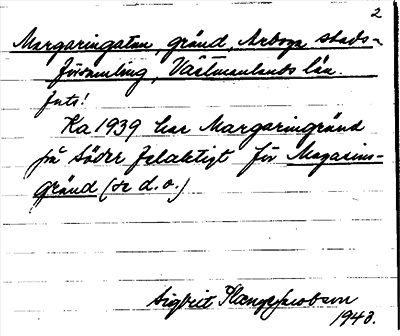 2
Margaringatan, gränd, Arboga stads-
församling, Västmanlands län.
futs!
Ka 1939 har Margaringränd
på söder felaktigt för Magasins-
gränd (se d.o.)
Sigbrit Plænge Jacobson
1943.